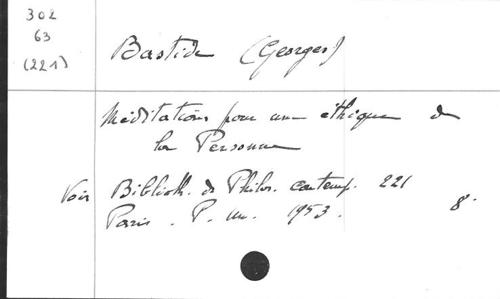 302
63
(221)
Bastide (Georges)
Méditations pour une éthique de
la Personne
Voir Biblioth. de Philos. contemp. 221
Paris. P. un. 1953. 8°